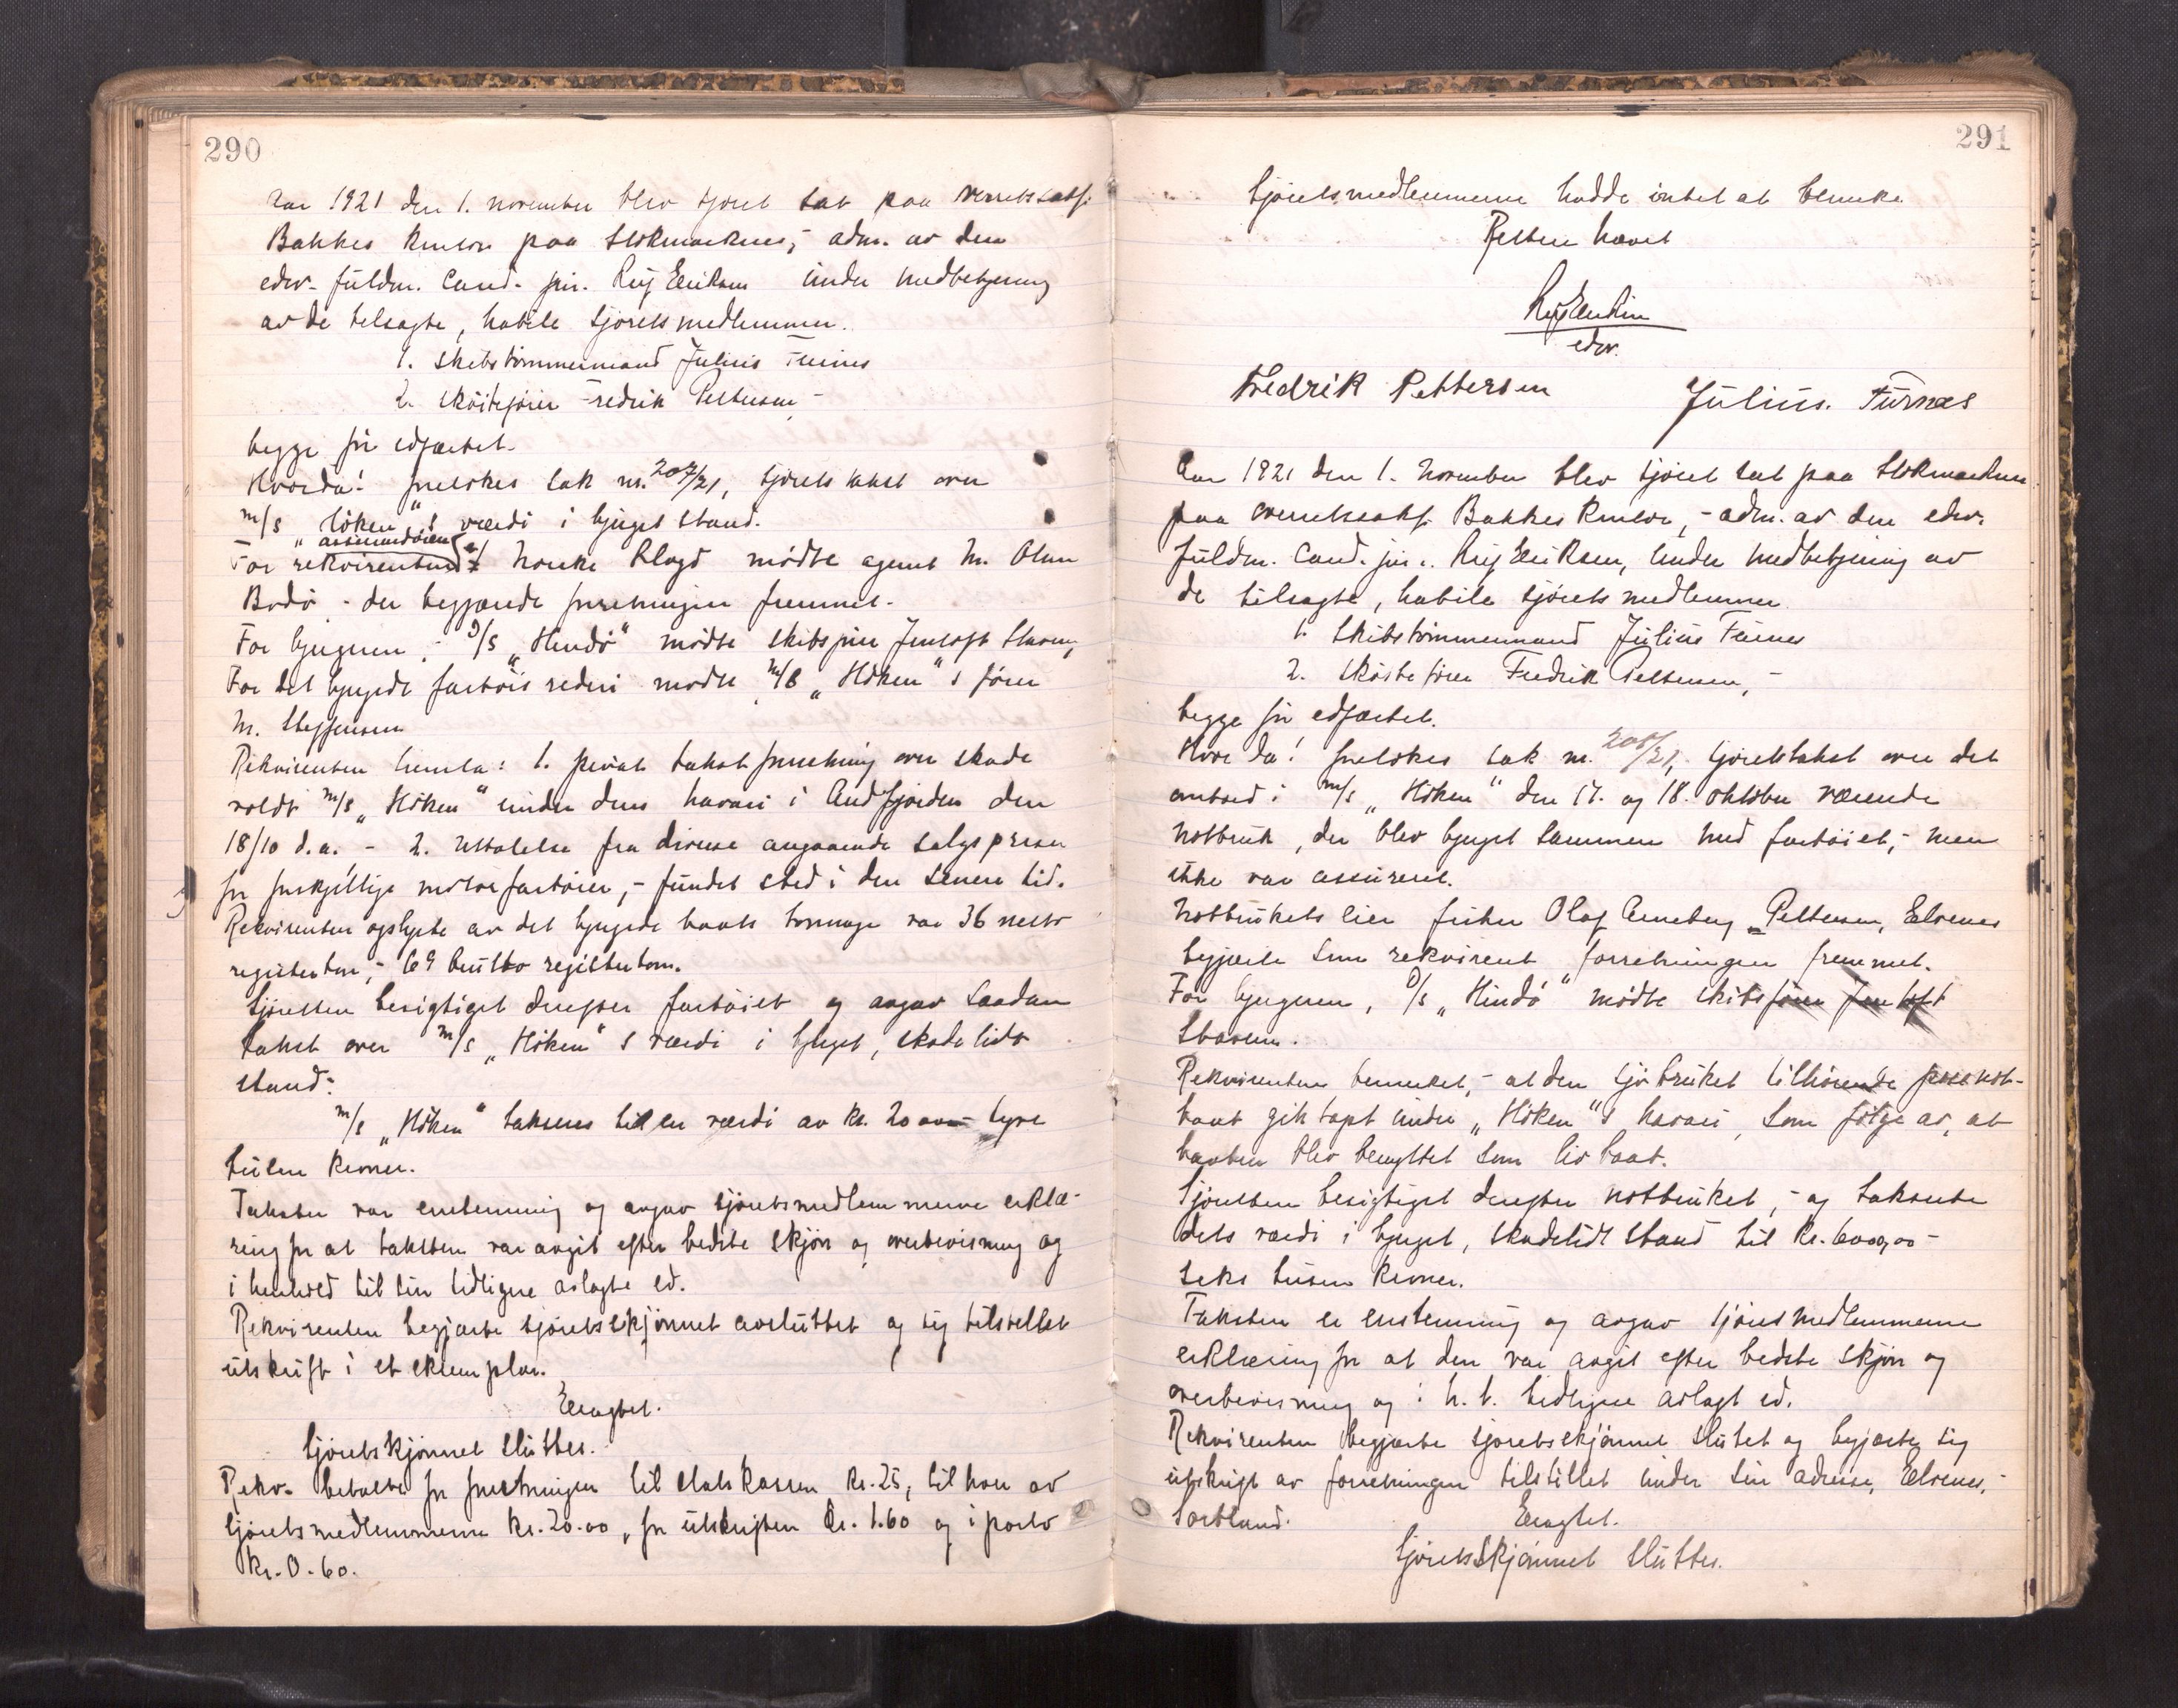 290
Aar 1921 den 1. november blev sjøret sat paa overretssakf.
Bakkes kontor paa Stokmarknes, - adm. av den
edsv. fuldm. Cand. jur. Eriksen under medbetjening
av de tilsagte, habile sjøretsmedlemmer.
1. skibstømmermand Julius Furnes
2. skøitefører Fredrik Pettersen -
begge før edfæstet.
Hvorda! foretokes sak nr. 207/21, sjøretstakst over
m/s „Höken"s værdi i bjerget stand.
assurandøren
For rekvirenten Norske Lloyd mødte agent M. Olsen
Bodø - der begjærede forretningen fremmet.
For bjergeren, D/S „Hindö" mødte skibsfører Jentoft
For det bjergede fartøis rederi mødte m/s „Höken"s fører
M. Steffensen
Rekvirenten fremla: 1. privat takstforretning over skade
voldt m/s „Höken" under dens havari i Andfjorden den
18/10 d.a. - 2. Uttalelse fra diverse angaaende salgspriser
for forskjellige motorfartøier, - fundet sted i den senere tid.
Rekvirenten oplyste at det bjergede baats tonnage var 36 netto
registerton, - 69 brutto registertons.
Sjøretten besigtiget derefter fartøiet og avgav saadan
takst over m/s „Höken"s værdi i bjerget, skadelidt
stand:
m/s „Höken" takseres til en værdi av kr. 20 000 tyve
tusen kroner.
Taksten var enstemmig og avgav sjøretsmedlemmerne erklæ-
ring for at taksten var avgit efter bedste skjøn og overbevisning og
i henhold til sin tidligere avlagte ed.
Rekvirenten begjærte sjøretsskjønnet avsluttet og sig tilstillet
utskrift i et eksemplar.
Eragtet.
Sjøretsskjønnet sluttes.
Rekv. betalte for forretningen til statskassen kr. 25, til hver av
sjøretsmedlemmerne kr. 20.00, for utskriften kr. 1.60 og i porto
kr. 0.60.
291
Sjøretsmedlemmerne hadde intet at bemerke
Retten hævet
Eriksen
edsv.
Fredrik Pettersen Julius. Furnæs
Aar 1921 den 1. november blev sjøret sat paa Stokmarknes
paa overretssakf. Bakkes kontor, - adm. av den edsv.
fuldm. Cand. jur. Eriksen, under medbetjening av
de tilsagte, habile sjøretsmedlemmer
1. Skibstømmermand Julius Furnes
2. skøitefører Fredrik Pettersen, -
begge før edfæstet.
Hvorda! foretokes sak nr. 208/21, sjøretstakst over det
ombord i m/s „Höken" den 17. og 18. oktober værende
notbruk, der blev bjerget sammen med fartøiet, - men
ikke var assureret.
Notbrukets eier fisker Olaf Arneberg Pettersen, Elvenes
begjærte som rekvirent forretningen fremmet.
For bjergeren, D/S „Hindö" mødte skibsfører Jentoft
Rekvirenten bemerket, - at den sjøbruket tilhørende not-
baat gik tapt under „Höken"s havari, som følge av, at
baaten blev benyttet som livbaat.
Sjøretten besigtiget derefter notbruket, - og takserte
dets værdi i bjerget, skadelidt stand til kr. 6000,00 -
seks tusen kroner.
Taksten er enstemmig og avgav sjøretsmedlemmerne
erklæring for at den var avgit efter bedste skjøn og
overbevisning og i h. t. tidligere avlagt ed.
Rekvirenten begjærte sjøretsskjønnet sluttet og begjærte sig
utskrift av forretningen tilstillet under sin adresse, Elvenes, -
Sortland. Eragtet.
Sjøretsskjønnet sluttes.